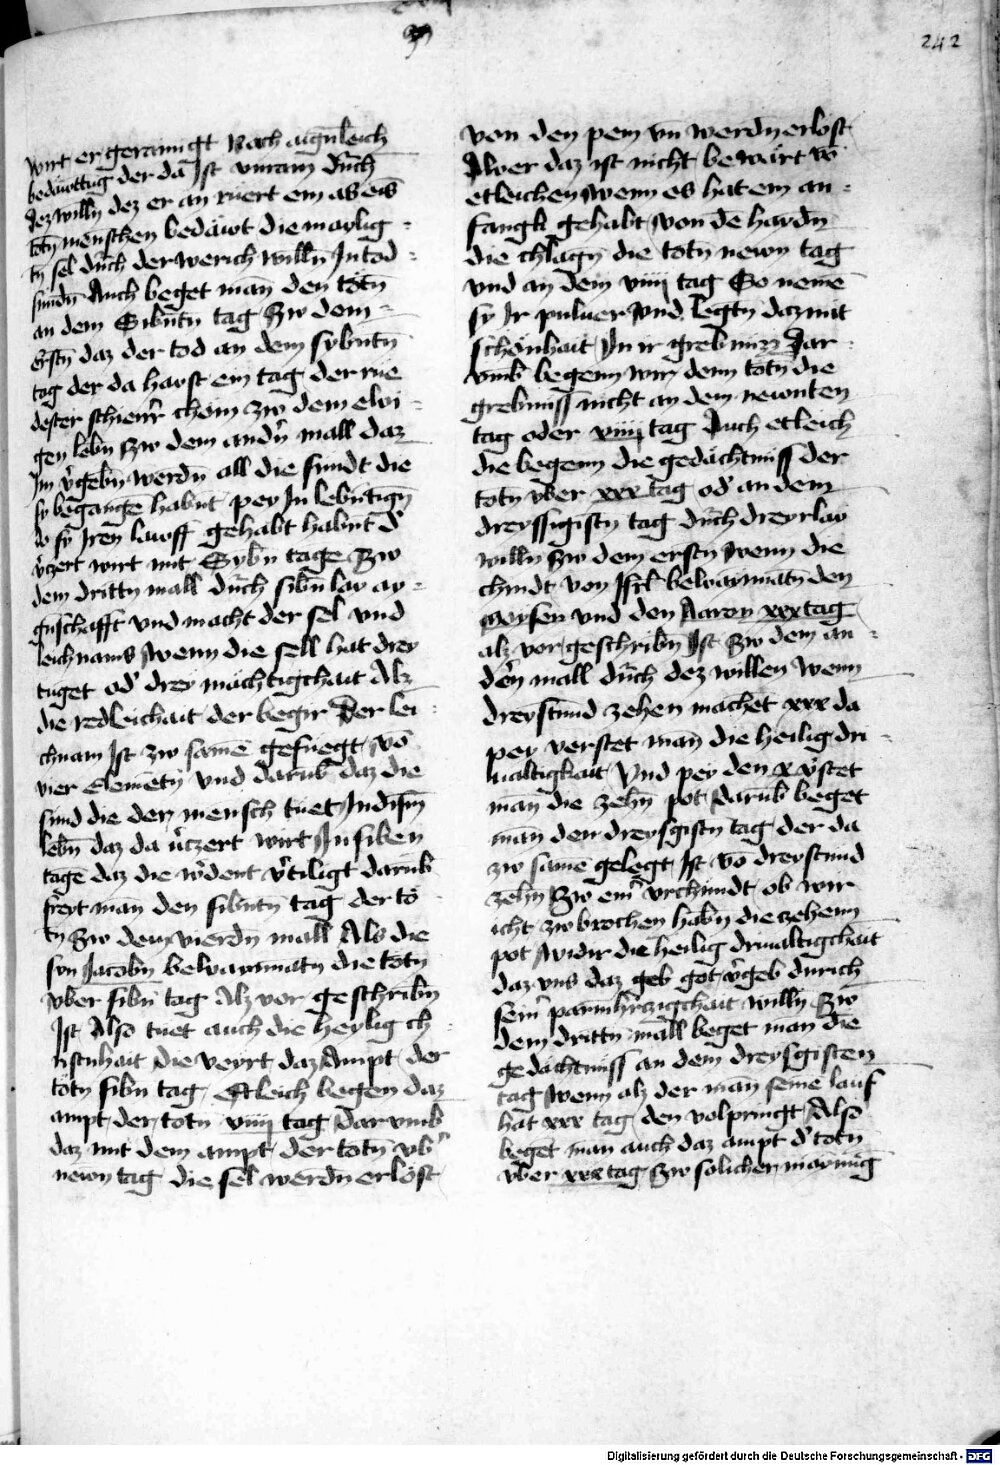 242
wirt er gerainigt Nach aigñleich
bedäwttug der da Ist vnram dürch
dez willn dez er an rüert ein asens
totn menschen bedäwt die maylig
tn sel dürch der werich willn In tod
sündn Auch beget man den totn
an dem Sibntn tag Zw dem
erstn daz der tod an dem sybntn
tag der da hayst ein tag der rue
dester schierr chöm zw dem ewi
gen lebn Zw dem andrn mall daz
Im vgebn werdn all die sündt die
sy begange habnt pey In lebntign
so sy Iren lawff gehabt habnt d
vczert wirt mit Sybn tage Zw
dem drittn mall dürch sibn lay ay
gnschafft vnd macht der sel vnd
leichnams Wenn die sell hat drey
tuget od drey mächtigchait Alz
die redleichait der begir Der lei
chnam Ist zw same gefuegt vo
vier Elemetn vnd darub daz die
sünd die der mensch tuet In dism
lebn daz da vczert wirt In siben
tage daz die wdent vtiligt darub
freyt man den sibntn tag der to
tn Zw dem vierdn mall Als die
sun Jacobn bewaynnatn die totn
vber sibn tag Alz vor geschribn
Ist Also tuet auch die heylig ch
ristnhait die veyrt daz Ampt der
totn sibn tag Etleich begen daz
ampt der totn viiij tag Dar vmb
daz mit dem ampt der totn vb
newn tag die sel werdn erlöst
von den pein vn werdn erlost
Aber daz ist nicht bewärt vo
etleichen Wenn es hat ein an
fangk gehabt von de haydn
die chlagn die totn newn tag
vnd an dem viiij tag So neme
sy Ir puluer vnd legtn daz mit
schönhait In ir grebnizz Dar
vmb begenn wir denn totn die
grebniss nicht an dem newnten
tag oder viiij tag Auch etleich
die begenn die gedächtniss der
totn vber xxx tag od an dem
dreyssigistn tag dürch dreyr lay
willn Zw dem erstn Wenn die
chindt von Isrl bewaynnatn den
Moysen vnd den Aaron xxx tag
alz vor geschribn Ist Zw dem an
dern mall dürch dez willen Wenn
dreystund zehen machet xxx da
pey verstet man die heilig dri
ualtigkait Vnd pey den x vstet
man die zehn pot Darub beget
man den dreysgistn tag der da
zw same gelegt Ist vo dreystund
zehn Zw eim vrchundt ob wir
icht zwbrochen habn die zehenn
pot Widir die heilig driualtigchait
daz vns daz geb got vgeb durich
seinr parmhrzigchait willn Zw
dem drittn mall beget man die
gedächtniss an dem dreysgisten
tag Wenn alz der man seine lauf
hat xxx tag den volpringt Also
beget man auch daz ampt d totn
vber xxx tag Zw solicher maynug
Digitalisierung gefördert durch die Deutsche Forschungsgemeinschaft - DFG